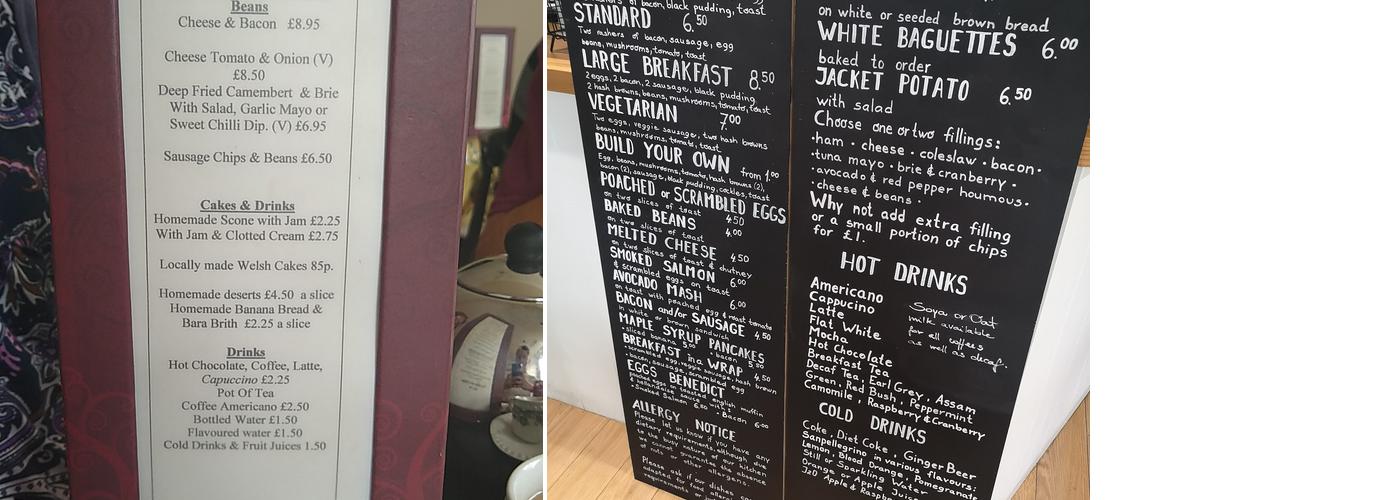 Beans
Cheese & Bacon £8.95
Cheese Tomato & Onion (V)
£8.50
Deep Fried Camembert & Brie
With Salad, Garlic Mayo or
Sweet Chilli Dip. (V) £6.95
Sausage Chips & Beans £6.50
Cakes & Drinks
Homemade Scone with Jam £2.25
With Jam & Clotted Cream £2.75
Locally made Welsh Cakes 85p.
Homemade deserts £4.50 a slice
Homemade Banana Bread &
Bara Brith £2.25 a slice
Drinks
Hot Chocolate, Coffee, Latte,
Capuccino £2.25
Pot Of Tea
Coffee Americano £2.50
Bottled Water £1.50
Flavoured water £1.50
Cold Drinks & Fruit Juices 1.50
of bacon, black pudding, toast
STANDARD 6.50
Two rashers of bacon, sausage, egg
beans, mushrooms, tomato, toast
LARGE BREAKFAST 8.50
2 eggs, 2 bacon, 2 sausage, black pudding
2 hash browns, beans, mushrooms, tomato, toast
VEGETARIAN 7.00
Two eggs, veggie sausage, two hash browns
beans, mushrooms, tomato, toast
BUILD YOUR OWN from 1.00
Egg, beans, mushrooms, tomato, hash browns (2),
bacon (2), sausage, black pudding, cockles, toast
POACHED or SCRAMBLED EGGS
on two slices of toast 4.50
BAKED BEANS 4.00
on two slices of toast
MELTED CHEESE 4.50
on two slices of toast & chutney
SMOKED SALMON 6.00
& scrambled eggs on toast
AVOCADO MASH 6.00
on toast with poached egg & roast tomato
BACON and/or SAUSAGE 4.50
in white or brown sandwich
MAPLE SYRUP PANCAKES
· sliced banana 5.00 · bacon 5.50
BREAKFAST in a WRAP 4.50
· scrambled egg, veggie sausage, hash brown
· bacon, sausage, scrambled egg
EGGS BENEDICT
poached eggs on toasted english muffin
& hollandaise sauce with:
· Smoked Salmon 6.50 · Bacon 6.00
ALLERGY NOTICE
Please let us know if you have any
dietary requirement, although due
to the busy nature of our kitchen
we cannot guarantee the absence
of nuts or other allergens.
Please ask if our dishes can
adapted for food allergi
requirements or
on white or seeded brown bread
WHITE BAGUETTES 6.00
baked to order
JACKET POTATO 6.50
with salad
Choose one or two fillings:
·ham · cheese · coleslaw · bacon·
·tuna mayo · brie & cranberry ·
·avocado & red pepper houmous·
·cheese & beans ·
Why not add extra filling
or a small portion of chips
for £1.
HOT DRINKS
Americano
Cappucino
Latte
Flat White
Mocha
Hot Chocolate
Breakfast Tea
Decaf Tea, Earl Grey, Assam
Green, Red Bush, Peppermint
Camomile, Raspberry & Cranberry
Soya or Oat
milk available
for all coffees
as well as decaf.
COLD DRINKS
Coke, Diet Coke, Ginger Beer
Sanpellegrino in various flavours:
Lemon, Blood Orange, Pomegranate
Still or Sparkling Water
Orange or Apple Juice
J2O Apple & Raspb